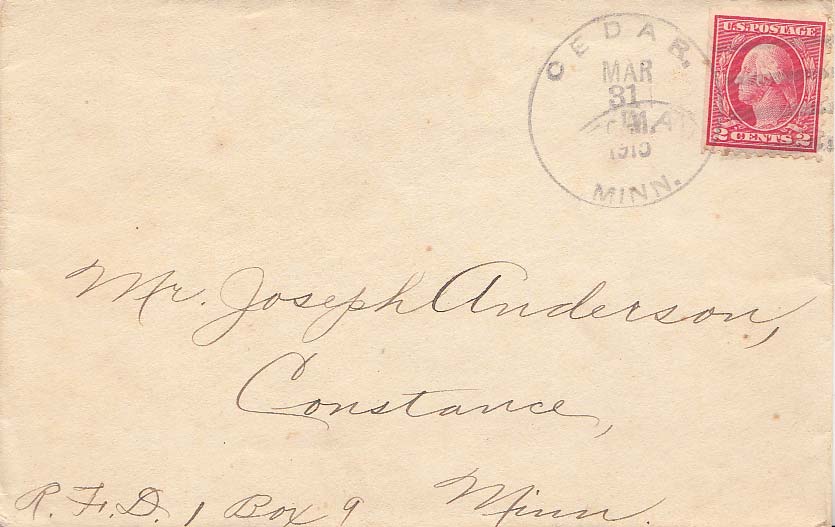 CEDAR.
MAR
31
MINN.
U.S. POSTAGE
2 CENTS 2
Mr. Joseph Anderson,
Constance,
R.F.D. 1 Box 9 Minn.